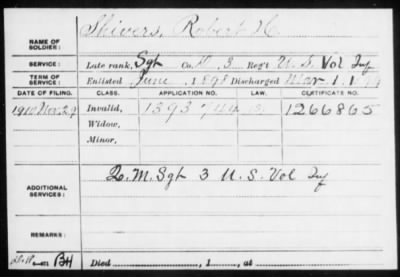 NAME OF SOLDIER: Shivers, Robert H.
SERVICE: Late rank, Sgt Co. 3 Reg't U. S. Vol Inf
TERM OF SERVICE: Enlisted June 1898 Discharged Mar 1, 1
DATE OF FILING. CLASS. APPLICATION NO. LAW. CERTIFICATE NO.
1910 Nov. 29 Invalid, 1393744 1266865
Widow,
Minor,
ADDITIONAL SERVICES: Q. M. Sgt 3 U. S. Vol Inf
REMARKS:
BH Died , 1 , at